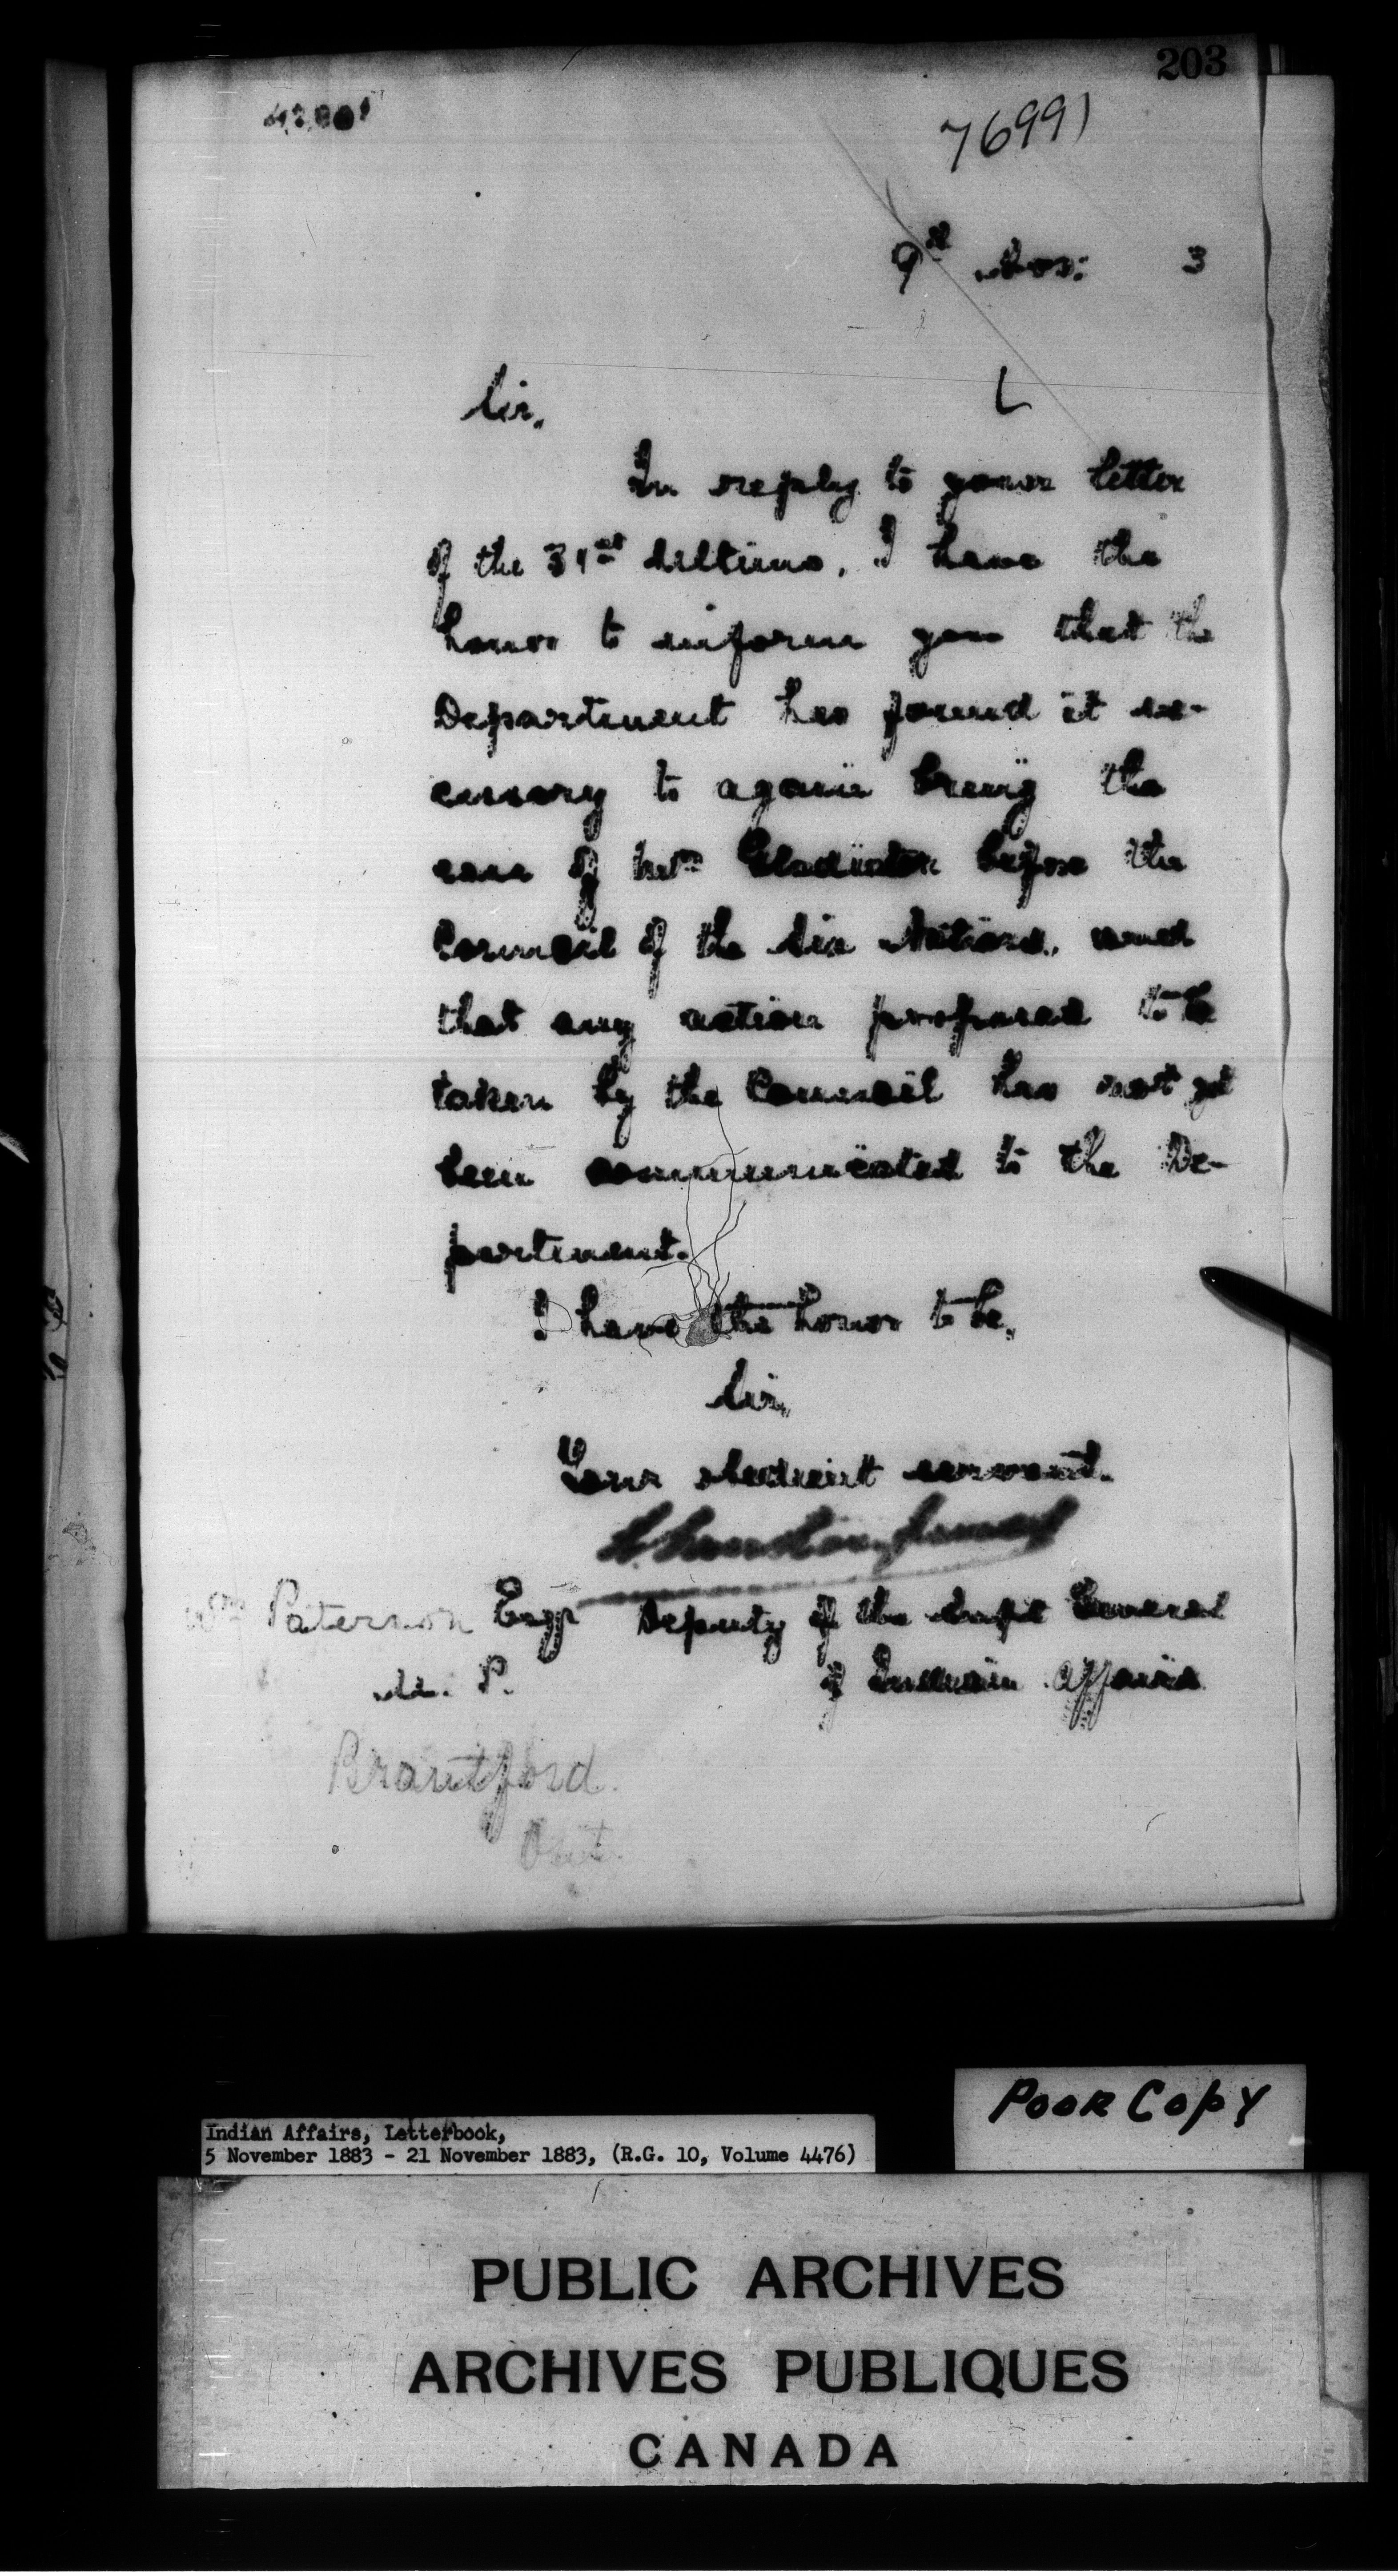 203
76991
9th Nov: 3
Sir,
In reply to your letter
of the 31st Ultimo, I have the
honor to inform you that the
Department has found it ne-
cessary to again bring the
case of
before the
Council of the Six Nations, and
that any action proposed to be
taken by the Council has not yet
been communicated to the De-
partment.
I have the honor to be,
Sir,
Your obedient servant.
Wm Paterson Esqr Deputy of the Supt General
M. P. of Indian Affairs
Brantford.
Ont.
Poor Copy
Indian Affairs, Letterbook,
5 November 1883 - 21 November 1883, (R.G. 10, Volume 4476)
PUBLIC ARCHIVES
ARCHIVES PUBLIQUES
CANADA